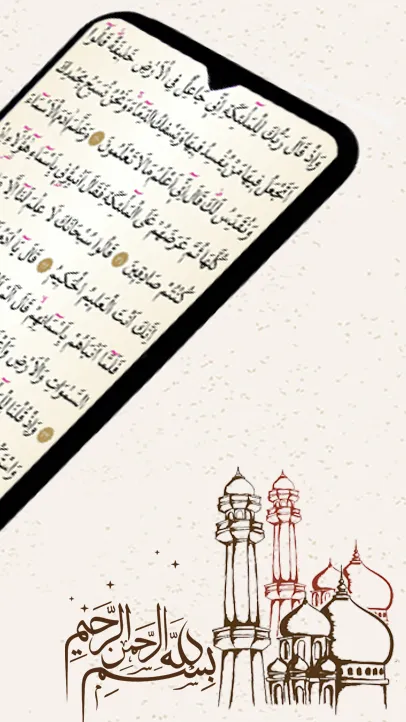 وَإِذْ قَالَ رَبُّكَ لِلْمَلٰٓئِكَةِ إِنِّي جَاعِلٌ فِي الْأَرْضِ خَلِيفَةً قَالُوا
أَتَجْعَلُ فِيهَا مَنْ يُفْسِدُ فِيهَا وَيَسْفِكُ الدِّمَاءَ وَنَحْنُ نُسَبِّحُ بِحَمْدِكَ
وَنُقَدِّسُ لَكَ قَالَ إِنِّي أَعْلَمُ مَا لَا تَعْلَمُونَ ۝ وَعَلَّمَ آدَمَ الْأَسْمَاءَ
كُلَّهَا ثُمَّ عَرَضَهُمْ عَلَى الْمَلٰٓئِكَةِ فَقَالَ أَنْبِئُونِي بِأَسْمَاءِ هٰٓؤُلَاءِ
كُنْتُمْ صَادِقِينَ ۝ قَالُوا سُبْحَانَكَ لَا عِلْمَ لَنَا إِلَّا
إِنَّكَ أَنْتَ الْعَلِيمُ الْحَكِيمُ ۝ قَالَ يَا آدَمُ
فَلَمَّا أَنْبَأَهُمْ بِأَسْمَائِهِمْ قَالَ
السَّمٰوَاتِ وَالْأَرْضِ
۝ وَإِذْ قُلْنَا
بِسْمِ اللَّهِ الرَّحْمٰنِ الرَّحِيمِ